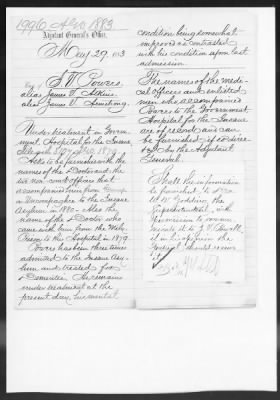 1996 AGO 1883
Adjutant General's Office,
May 29, 1883
J. V. Powers,
alias James V. Atkins
alias James V. Armstrong.
Under treatment in Govern
ment Hospital for the Insane,
Asks to be furnished with the
names of the Doctor and the
two non-com'd officers that
accompanied him from Camp
to the Insane
Asylum in 1880. Also the
name of the Doctor who
came with him from the
to the Hospital in 1879.
Powers has been three times
admitted to the Insane Asy-
lum and treated for
Dementia. He remains
under treatment at the
present day, his mental
condition being somewhat
improved as contrasted
with his condition upon last
admission.
The names of the medi-
cal officers and enlisted
men who accompanied
Powers to the Government
Hospital for the Insane
are of record and can
be furnished, if ordered
by the Adjutant
General.
Shall the information
be furnished to Dr.
W. W. Godding, the
Superintendent, with
permission to commu-
nicate it to J. V.
if in his opinion the
should receive
it?